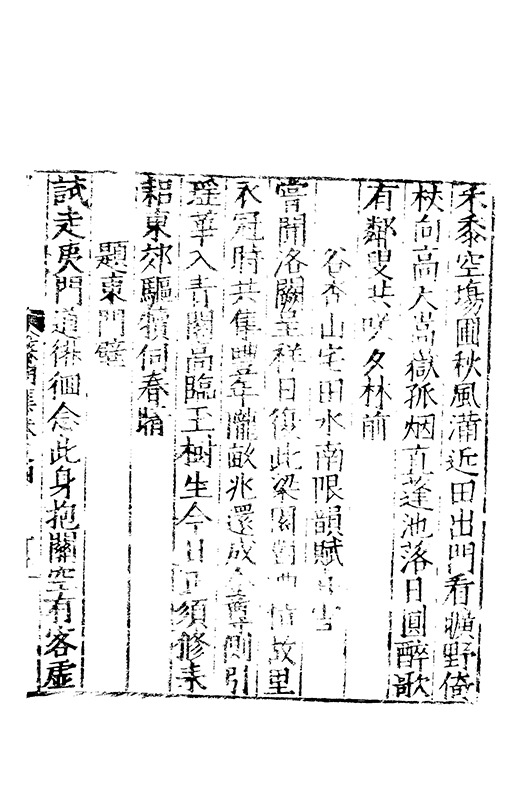 禾黍空場圃秋風滿近田出門看曠野倚
杖向高天嵩嶽孤烟直蓬池落日圓醉歌
有鄰叟共嘆夕林前
谷杏山宅田水南限韻賦
嘗聞洛關呈祥日復此梁園故里
衣冠時共集豐年隴畝兆還成尊則引
瑶華入青閣高臨玉樹生今日正須修耒
耜東郊驅犢伺春晴
題東門壁
試走夷門道徘徊念此身抱關空有客虛